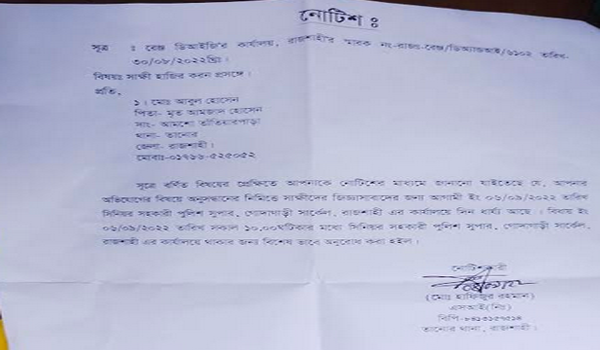 নোটিশ ঃ
সূত্র : রেঞ্জ ডিআইজি'র কার্যালয়, রাজশাহী'র স্মারক নং-রাজঃ-রেঞ্জ/ডিঅ্যান্ডআই/৬১০২ তারিখ-
৩০/০৮/২০২২খ্রিঃ।
বিষয়ঃ সাক্ষী হাজির করন প্রসঙ্গে।
প্রতি,
১। মোঃ আবুল হোসেন
পিতা- মৃত আমজাদ হোসেন
সাং- আমশো তাঁতিয়ারপাড়া
থানা- তানোর
জেলা- রাজশাহী।
মোবাঃ-০১৭৬৬-৫২৫০৫২
সূত্রে বর্ণিত বিষয়ের প্রেক্ষিতে আপনাকে নোটিশের মাধ্যমে জানানো যাইতেছে যে, আপনার
অভিযোগের বিষয়ে অনুসন্ধানের নিমিত্তে সাক্ষীদের জিজ্ঞাসাবাদের জন্য আগামী ইং ০৬/০৯/২০২২ তারিখ
সিনিয়র সহকারী পুলিশ সুপার, গোদাগাড়ী সার্কেল, রাজশাহী এর কার্যালয়ে দিন ধার্য্য আছে । বিধায় ইং
০৬/০৯/২০২২ তারিখ সকাল ১০.০০ঘটিকার মধ্যে সিনিয়র সহকারী পুলিশ সুপার, গোদাগাড়ী সার্কেল,
রাজশাহী এর কার্যালয়ে থাকার জন্য বিশেষ ভাবে অনুরোধ করা হইল।
নোটিশকারী
(মোঃ হাফিজুর রহমান)
এসআই(নিঃ)
বিপি-৮৪১৩১৫৭৫১৪
তানোর থানা, রাজশাহী।